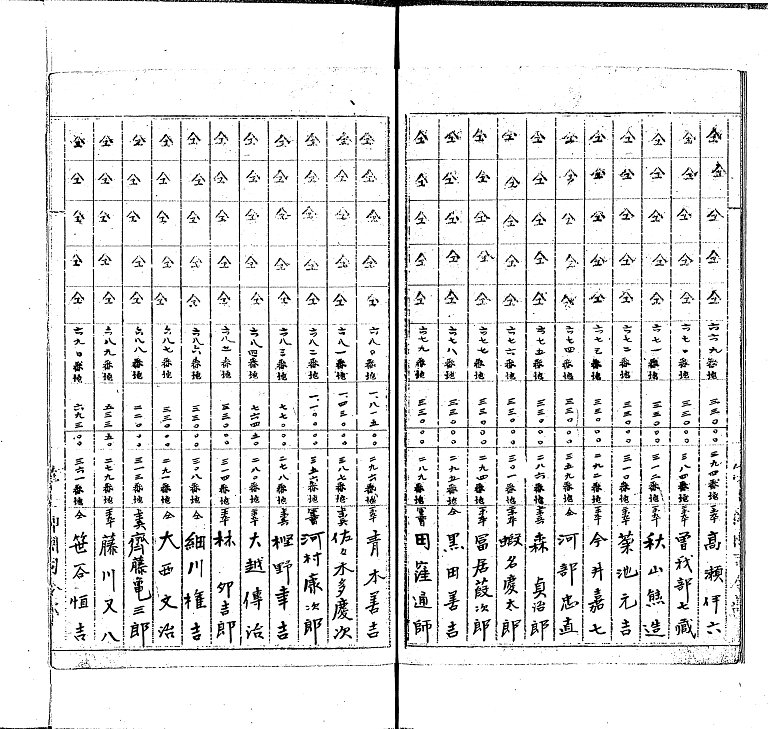 仝 仝 仝 仝 仝 六六九番地 三三〇〇〇 二九四番地 高瀬伊六
仝 仝 仝 仝 仝 六七〇番地 三三〇〇〇 三八四番地 曽我部七蔵
仝 仝 仝 仝 仝 六七一番地 三三〇〇〇 三一二番地 秋山熊造
仝 仝 仝 仝 仝 六七二番地 三三〇〇〇 三一〇番地 菊池元吉
仝 仝 仝 仝 仝 六七三番地 三三〇〇〇 二九二番地 今井嘉七
仝 仝 仝 仝 仝 六七四番地 三三〇〇〇 三五九番地 仝 河部忠直
仝 仝 仝 仝 仝 六七五番地 三三〇〇〇 二八六番地 森貞治郎
仝 仝 仝 仝 仝 六七六番地 三三〇〇〇 三〇一番地 蝦名慶太郎
仝 仝 仝 仝 仝 六七七番地 三三〇〇〇 二九四番地 冨居葭次郎
仝 仝 仝 仝 仝 六七八番地 三三〇〇〇 二九五番地 仝 黒田善吉
仝 仝 仝 仝 仝 六七九番地 三三〇〇〇 二八九番地 田窪通師
仝 仝 仝 仝 仝 六八〇番地 一、八一五〇〇 二九六番地 青木善吉
仝 仝 仝 仝 仝 六八一番地 一、四三〇〇〇 三八七番地 佐々木多慶次
仝 仝 仝 仝 仝 六八二番地 一、一〇〇〇〇 三五六番地 河村廉次郎
仝 仝 仝 仝 仝 六八三番地 七七〇〇〇 二七八番地 樫野幸吉
仝 仝 仝 仝 仝 六八四番地 七六四五〇 二八〇番地 大越傳治
仝 仝 仝 仝 仝 三三〇〇〇 三一四番地 林卯吉郎
仝 仝 仝 仝 仝 六八六番地 三三〇〇〇 三〇八番地 仝 細川権吉
仝 仝 仝 仝 仝 六八七番地 三三〇〇〇 二九一番地 仝 大西文治
仝 仝 仝 仝 仝 六八八番地 二二〇〇〇 三一三番地 齊藤亀三郎
仝 仝 仝 仝 仝 六八九番地 五三三五〇 二七九番地 藤川又八
仝 仝 仝 仝 仝 六九〇番地 六九三〇〇 三六一番地 仝 笹谷恒吉